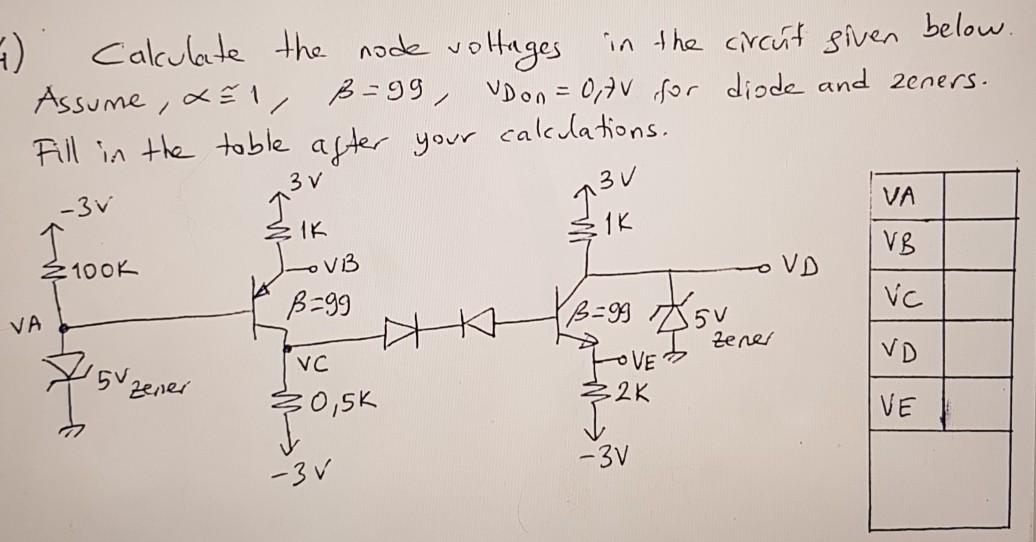 4) Calculate the node voltages in the circuit given below.
Assume, α ≅ 1, β = 99, VDon = 0,7V for diode and zeners.
Fill in the table after your calculations.
-3V
3V
3V
1K
1K
100K
VB
VD
β=99
β=99
5V
zener
VA
VC
VE
5V zener
0,5K
2K
-3V
-3V
VA
VB
VC
VD
VE